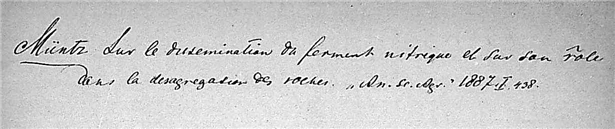 Müntz Sur le dissemination du ferment nitrique et sur son rôle
dans la desagregation des roches. „An. Sc. Agr." 1887. I. 438.